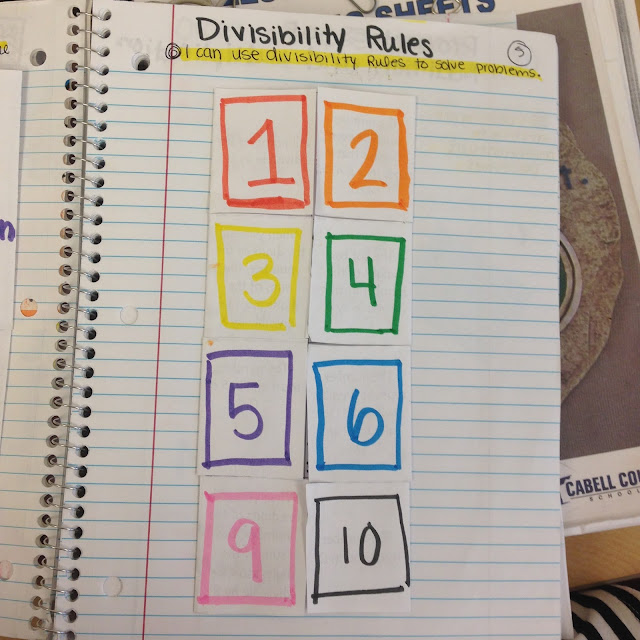 SHEETS
Divisibility Rules
I can use divisibility Rules to solve problems.
5
1 2
3 4
5 6
9 10
CABELL